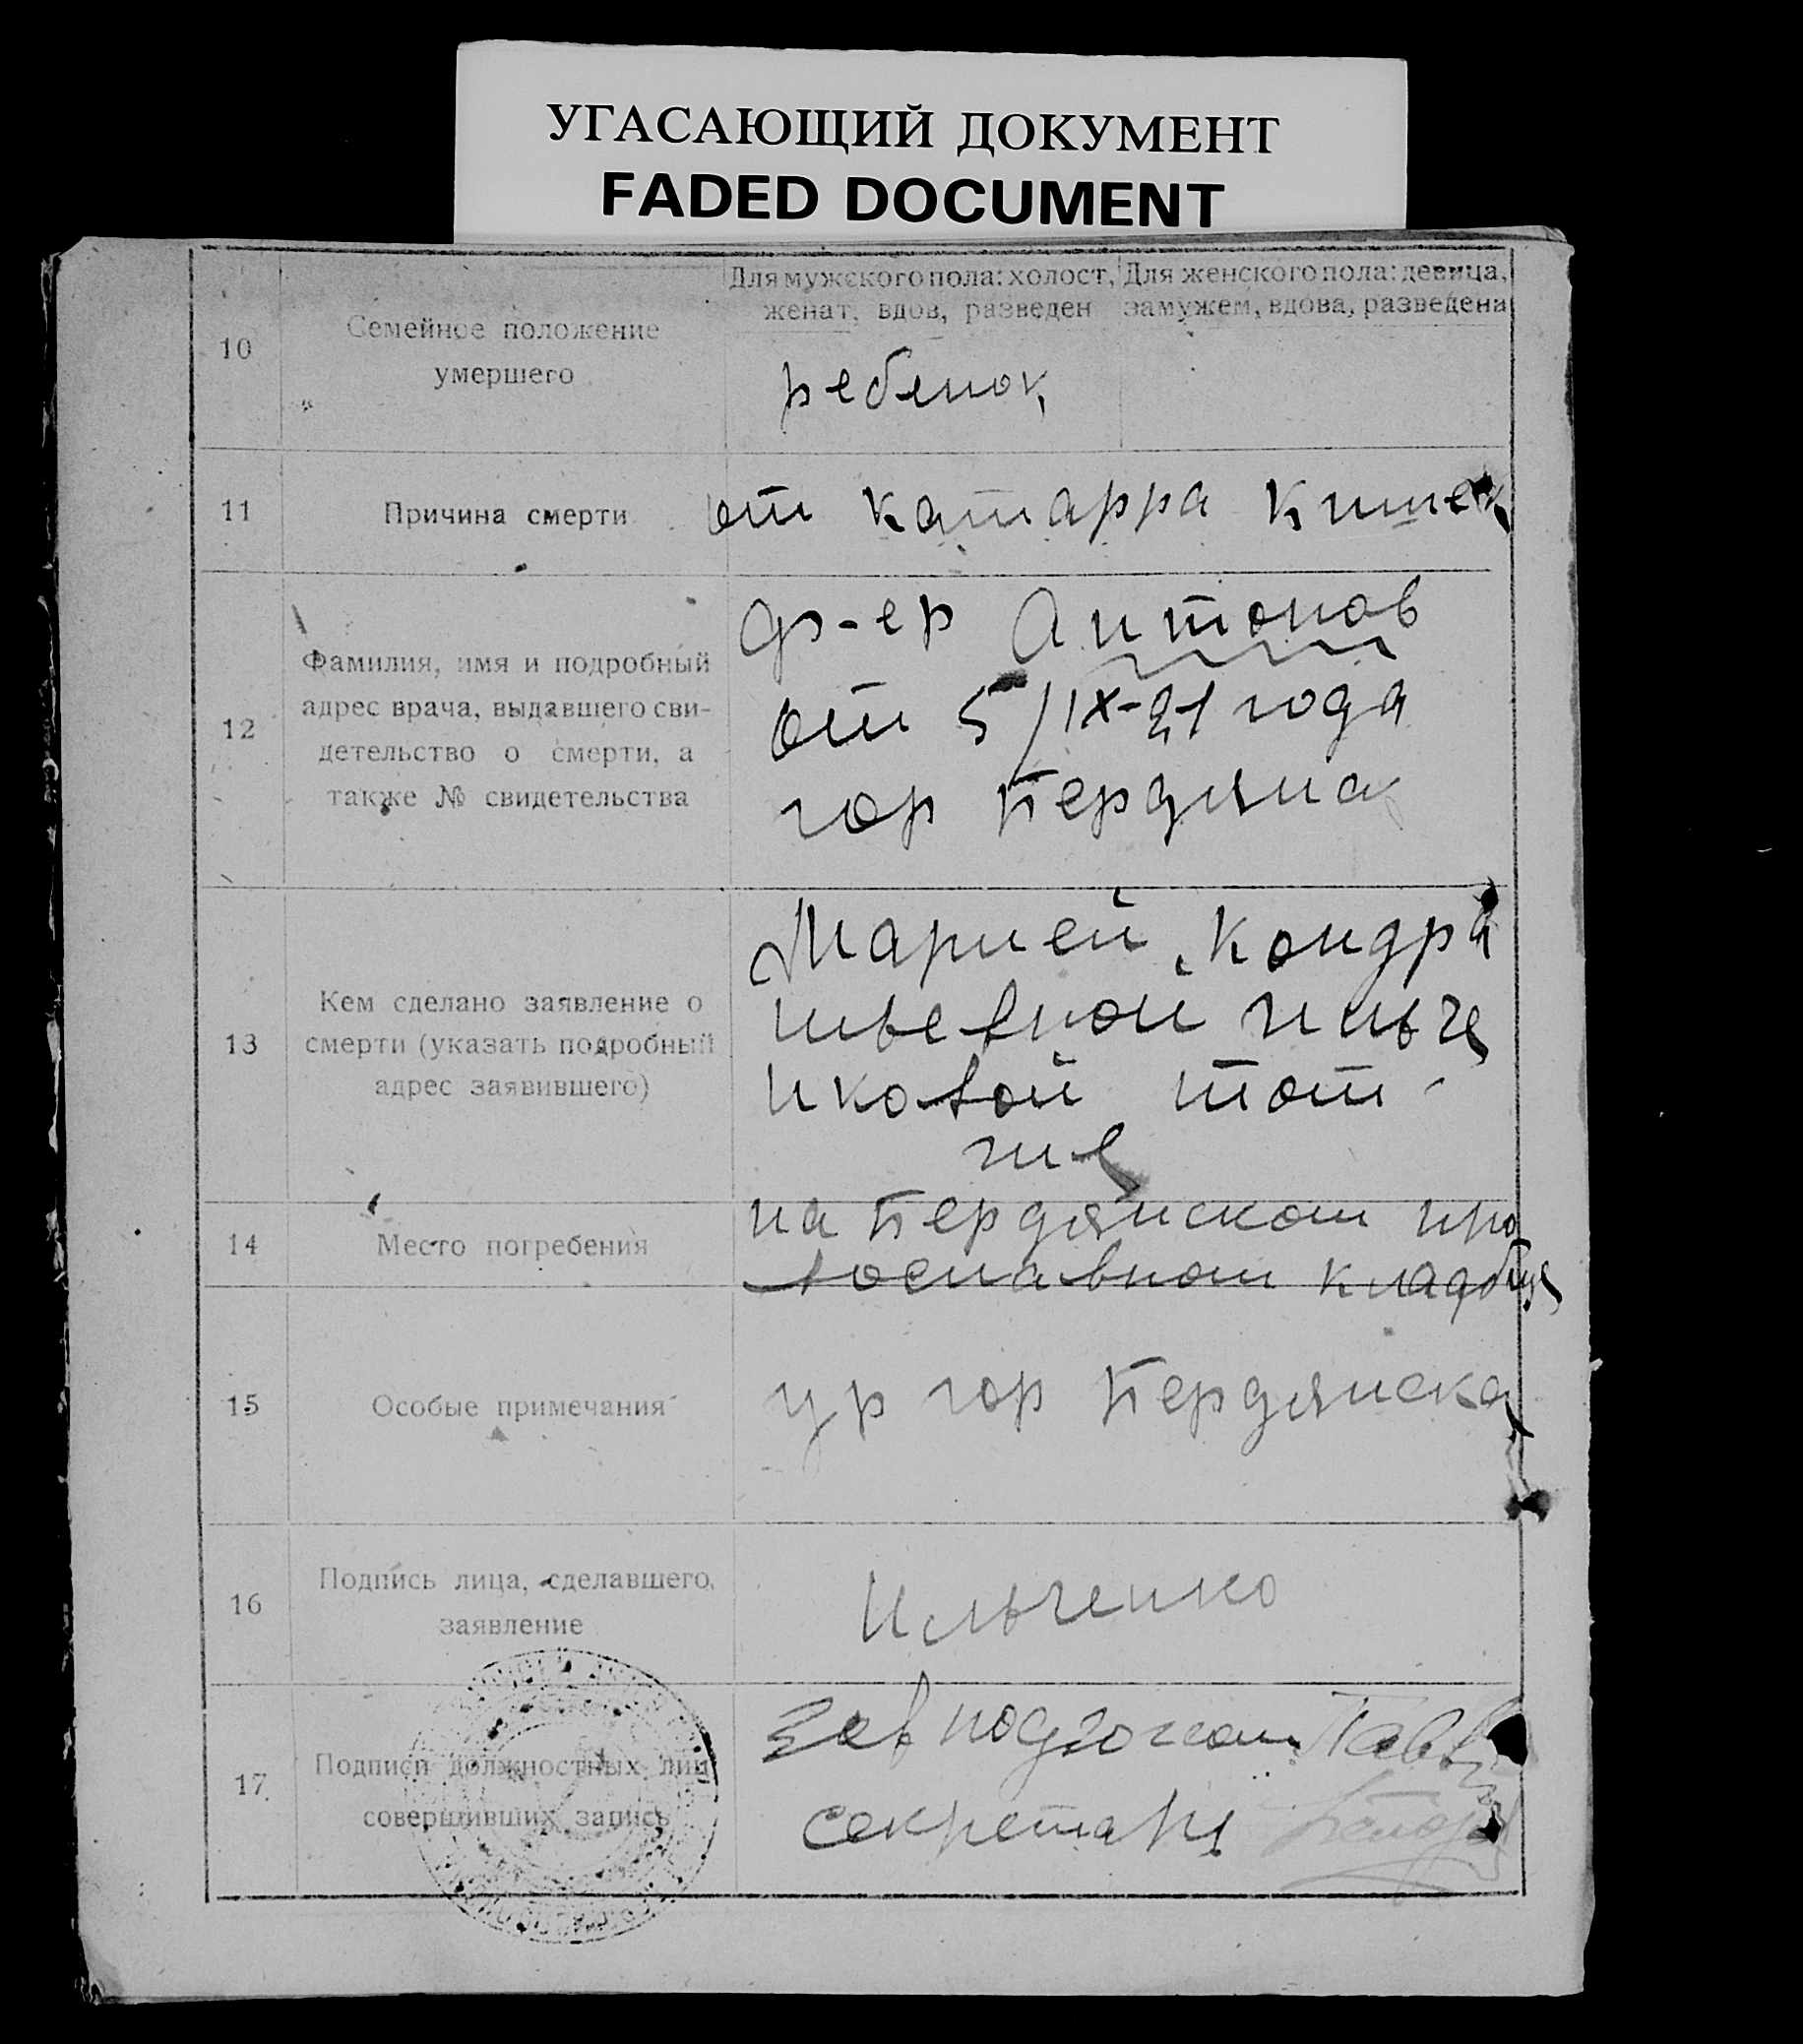 УГАСАЮЩИЙ ДОКУМЕНТ
FADED DOCUMENT
10
Семейное положение
умершего
Для мужского пола: холост,
женат, вдов, разведен
Для женского пола: девица,
замужем, вдова, разведена
ребенок
11
Причина смерти
от катарра кишек
12
Фамилия, имя и подробный
адрес врача, выдавшего сви-
детельство о смерти, а
также № свидетельства
ф-ер Антонов
от 5/IX-21 года
гор Бердянск
13
Кем сделано заявление о
смерти (указать подробный
адрес заявившего)
Марией Кондра
тьевной Ильче
нковой тот
же
14
Место погребения
на Бердянском пра
вославном кладбище
15
Особые примечания
гор Бердянска
16
Подпись лица, сделавшего
заявление
Ильченко
17
Подписи должностных лиц
совершивших запись
Зав
секретарь